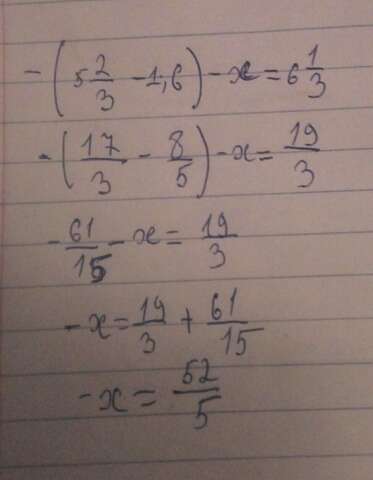 -(5 2/3 - 1,6) - x = 6 1/3
-(17/3 - 8/5) - x = 19/3
-61/15 - x = 19/3
-x = 19/3 + 61/15
-x = 52/5